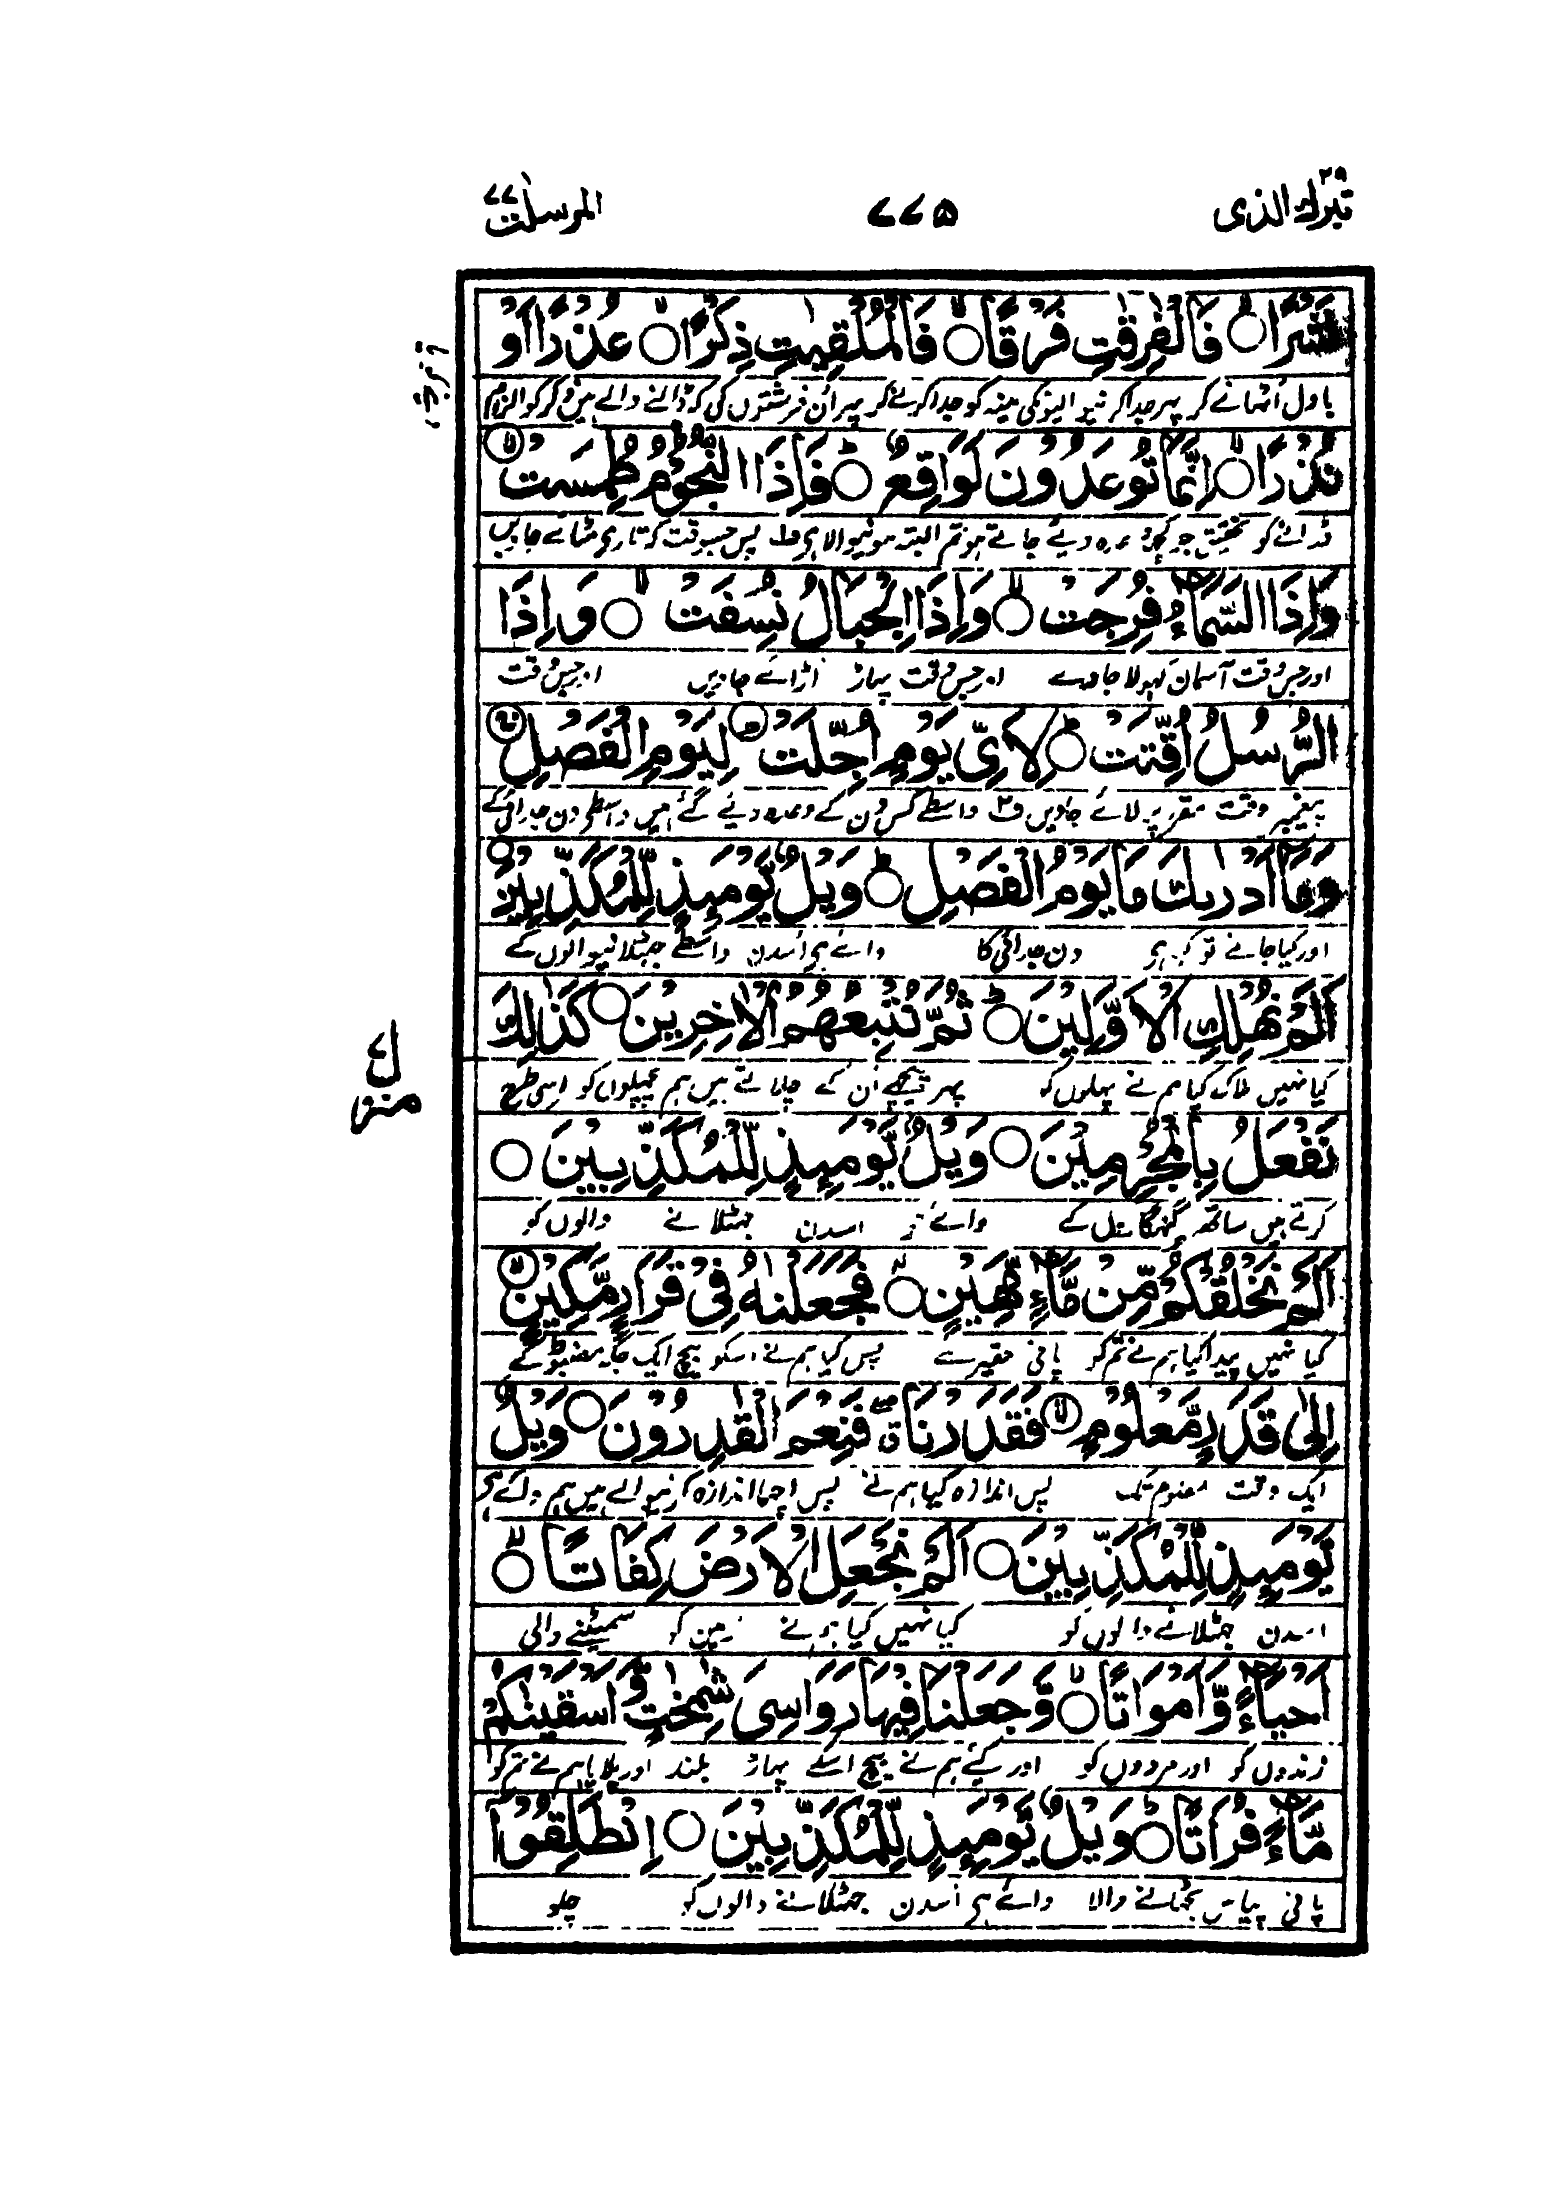 تبرك الذى ٢٩
٧٧٥
المرسلت ٧٧
نَشْرًا ۙ فَالْفٰرِقٰتِ فَرْقًا ۙ فَالْمُلْقِيٰتِ ذِكْرًا ۙ عُذْرًا اَوْ
بادل اٹھانے کر پھر جدا کر نیوالیونکی مینہ کو جدا کرنے کر پھر اُن فرشتوں کی کہ ڈالنے والے ہیں ذکر کو الزام
نُذْرًا ۙ اِنَّمَا تُوْعَدُوْنَ لَوَاقِعٌ ؕ فَاِذَا النُّجُوْمُ طُمِسَتْ ۙ
ڈرانے کو تحقیق جو کچھ وعدہ دیئے جاتے ہو تم البتہ ہونیوالا ہی پس جسوقت کہ تاری مٹائے جاویں
وَاِذَا السَّمَآءُ فُرِجَتْ ۙ وَاِذَا الْجِبَالُ نُسِفَتْ ۙ وَاِذَا
اور جس وقت آسمان کھولا جاوے اور جس وقت پہاڑ اڑائے جاویں اور جس وقت
الرُّسُلُ اُقِّتَتْ ؕ لِاَيِّ يَوْمٍ اُجِّلَتْ ؕ لِيَوْمِ الْفَصْلِ ۚ
پیغمبر وقت مقرر پر لائے جاویں ف۲ واسطے کس دن کے وعدہ دیئے گئے ہیں واسطے دن جدائی کے
وَمَآ اَدْرٰىكَ مَا يَوْمُ الْفَصْلِ ؕ وَيْلٌ يَّوْمَئِذٍ لِّلْمُكَذِّبِيْنَ
اور کیا جانے تو کیا ہی دن جدائی کا وائے ہی اُسدن واسطے جھٹلانیوالوں کے
اَلَمْ نُهْلِكِ الْاَوَّلِيْنَ ؕ ثُمَّ نُتْبِعُهُمُ الْاٰخِرِيْنَ ○ كَذٰلِكَ
کیا نہیں ہلاک کیا ہم نے پہلوں کو پھر پیچھے اُن کے چلاتے ہیں ہم پچھلوں کو اسی طرح
نَفْعَلُ بِالْمُجْرِمِيْنَ ○ وَيْلٌ يَّوْمَئِذٍ لِّلْمُكَذِّبِيْنَ ○
کرتے ہیں ساتھ گنہگاروں کے وائے ہی اسدن جھٹلانے والوں کو
اَلَمْ نَخْلُقْكُّمْ مِّنْ مَّآءٍ مَّهِيْنٍ ۙ فَجَعَلْنٰهُ فِيْ قَرَارٍ مَّكِيْنٍ ۙ
کیا نہیں پیدا کیا ہم نے تم کو پانی حقیر سے پس کیا ہم نے اسکو بیچ ایک جگہ مضبوط کے
اِلٰى قَدَرٍ مَّعْلُوْمٍ ۙ فَقَدَرْنَا ۖ فَنِعْمَ الْقٰدِرُوْنَ ○ وَيْلٌ
ایک وقت معلوم تک پس اندازہ کیا ہم نے پس اچھا اندازہ کرنیوالے ہیں ہم وائے ہی
يَّوْمَئِذٍ لِّلْمُكَذِّبِيْنَ ○ اَلَمْ نَجْعَلِ الْاَرْضَ كِفَاتًا ۙ
اسدن جھٹلانے والوں کو کیا نہیں کیا ہم نے زمین کو سمیٹنے والی
اَحْيَآءً وَّاَمْوَاتًا ۙ وَّجَعَلْنَا فِيْهَا رَوَاسِيَ شٰمِخٰتٍ وَّاَسْقَيْنٰكُمْ
زندوں کو اور مردوں کو اور کیے ہم نے بیچ اسکے پہاڑ بلند اور پلایا ہم نے تم کو
مَّآءً فُرَاتًا ؕ وَيْلٌ يَّوْمَئِذٍ لِّلْمُكَذِّبِيْنَ ○ اِنْطَلِقُوْٓا
پانی پیاس بجھانے والا وائے ہی اُسدن جھٹلانے والوں کو چلو
منزل ٧